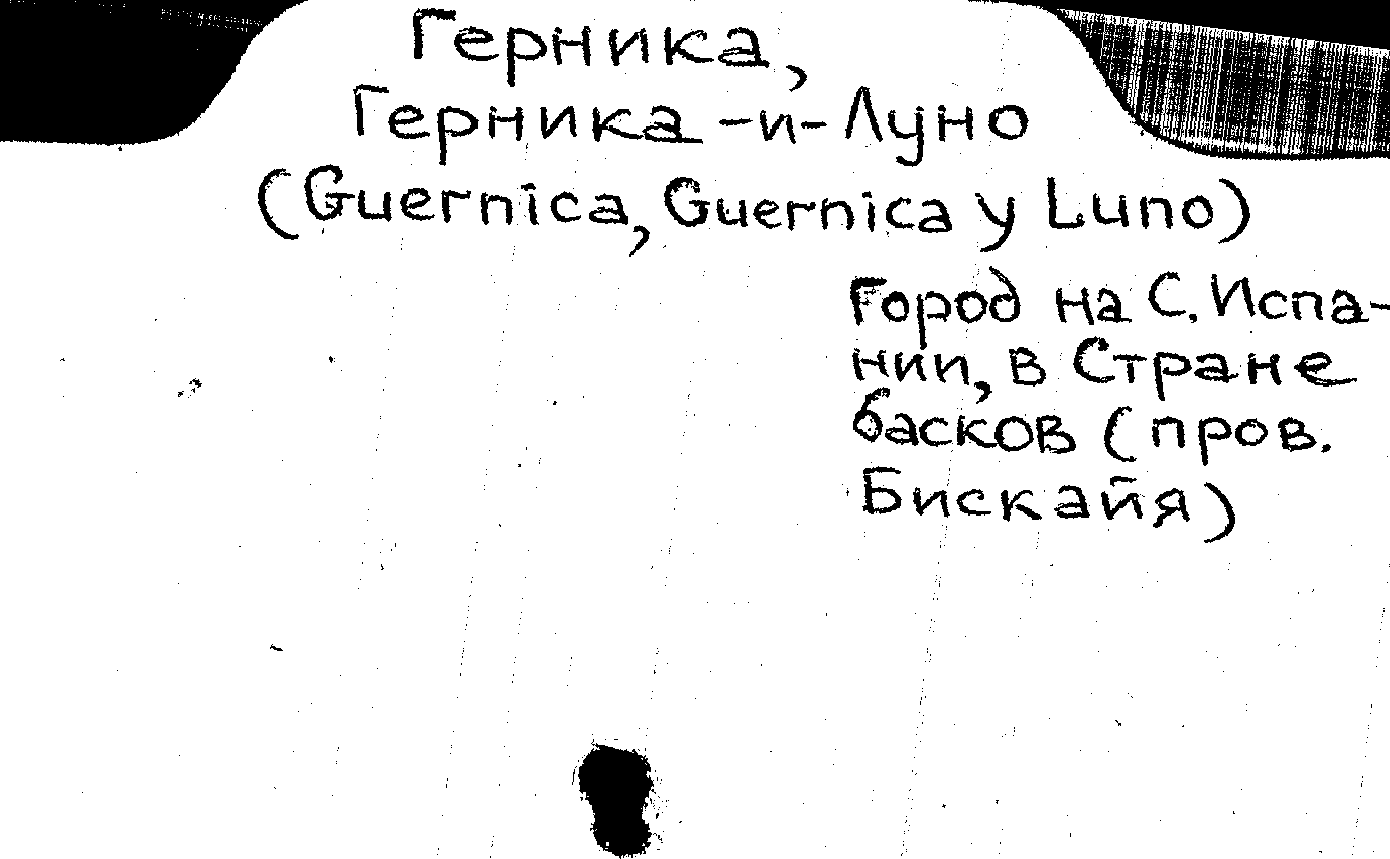 Герника,
Герника-и-Луно
(Guernica, Guernica y Luno)
Город на С. Испа-
нии, в Стране
басков (пров.
Бискайя)